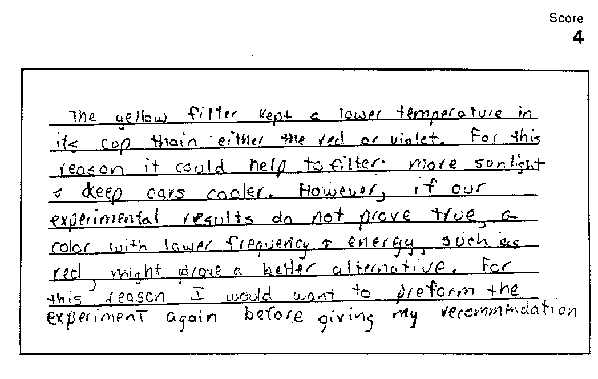 Score
4
The yellow filter kept a lower temperature in
its cup than either the red or violet. For this
reason it could help to filter more sunlight
& keep cars cooler. However, if our
experimental results do not prove true, a
color with lower frequency & energy, such as
red, might prove a better alternative. For
this reason I would want to preform the
experiment again before giving my recommendation